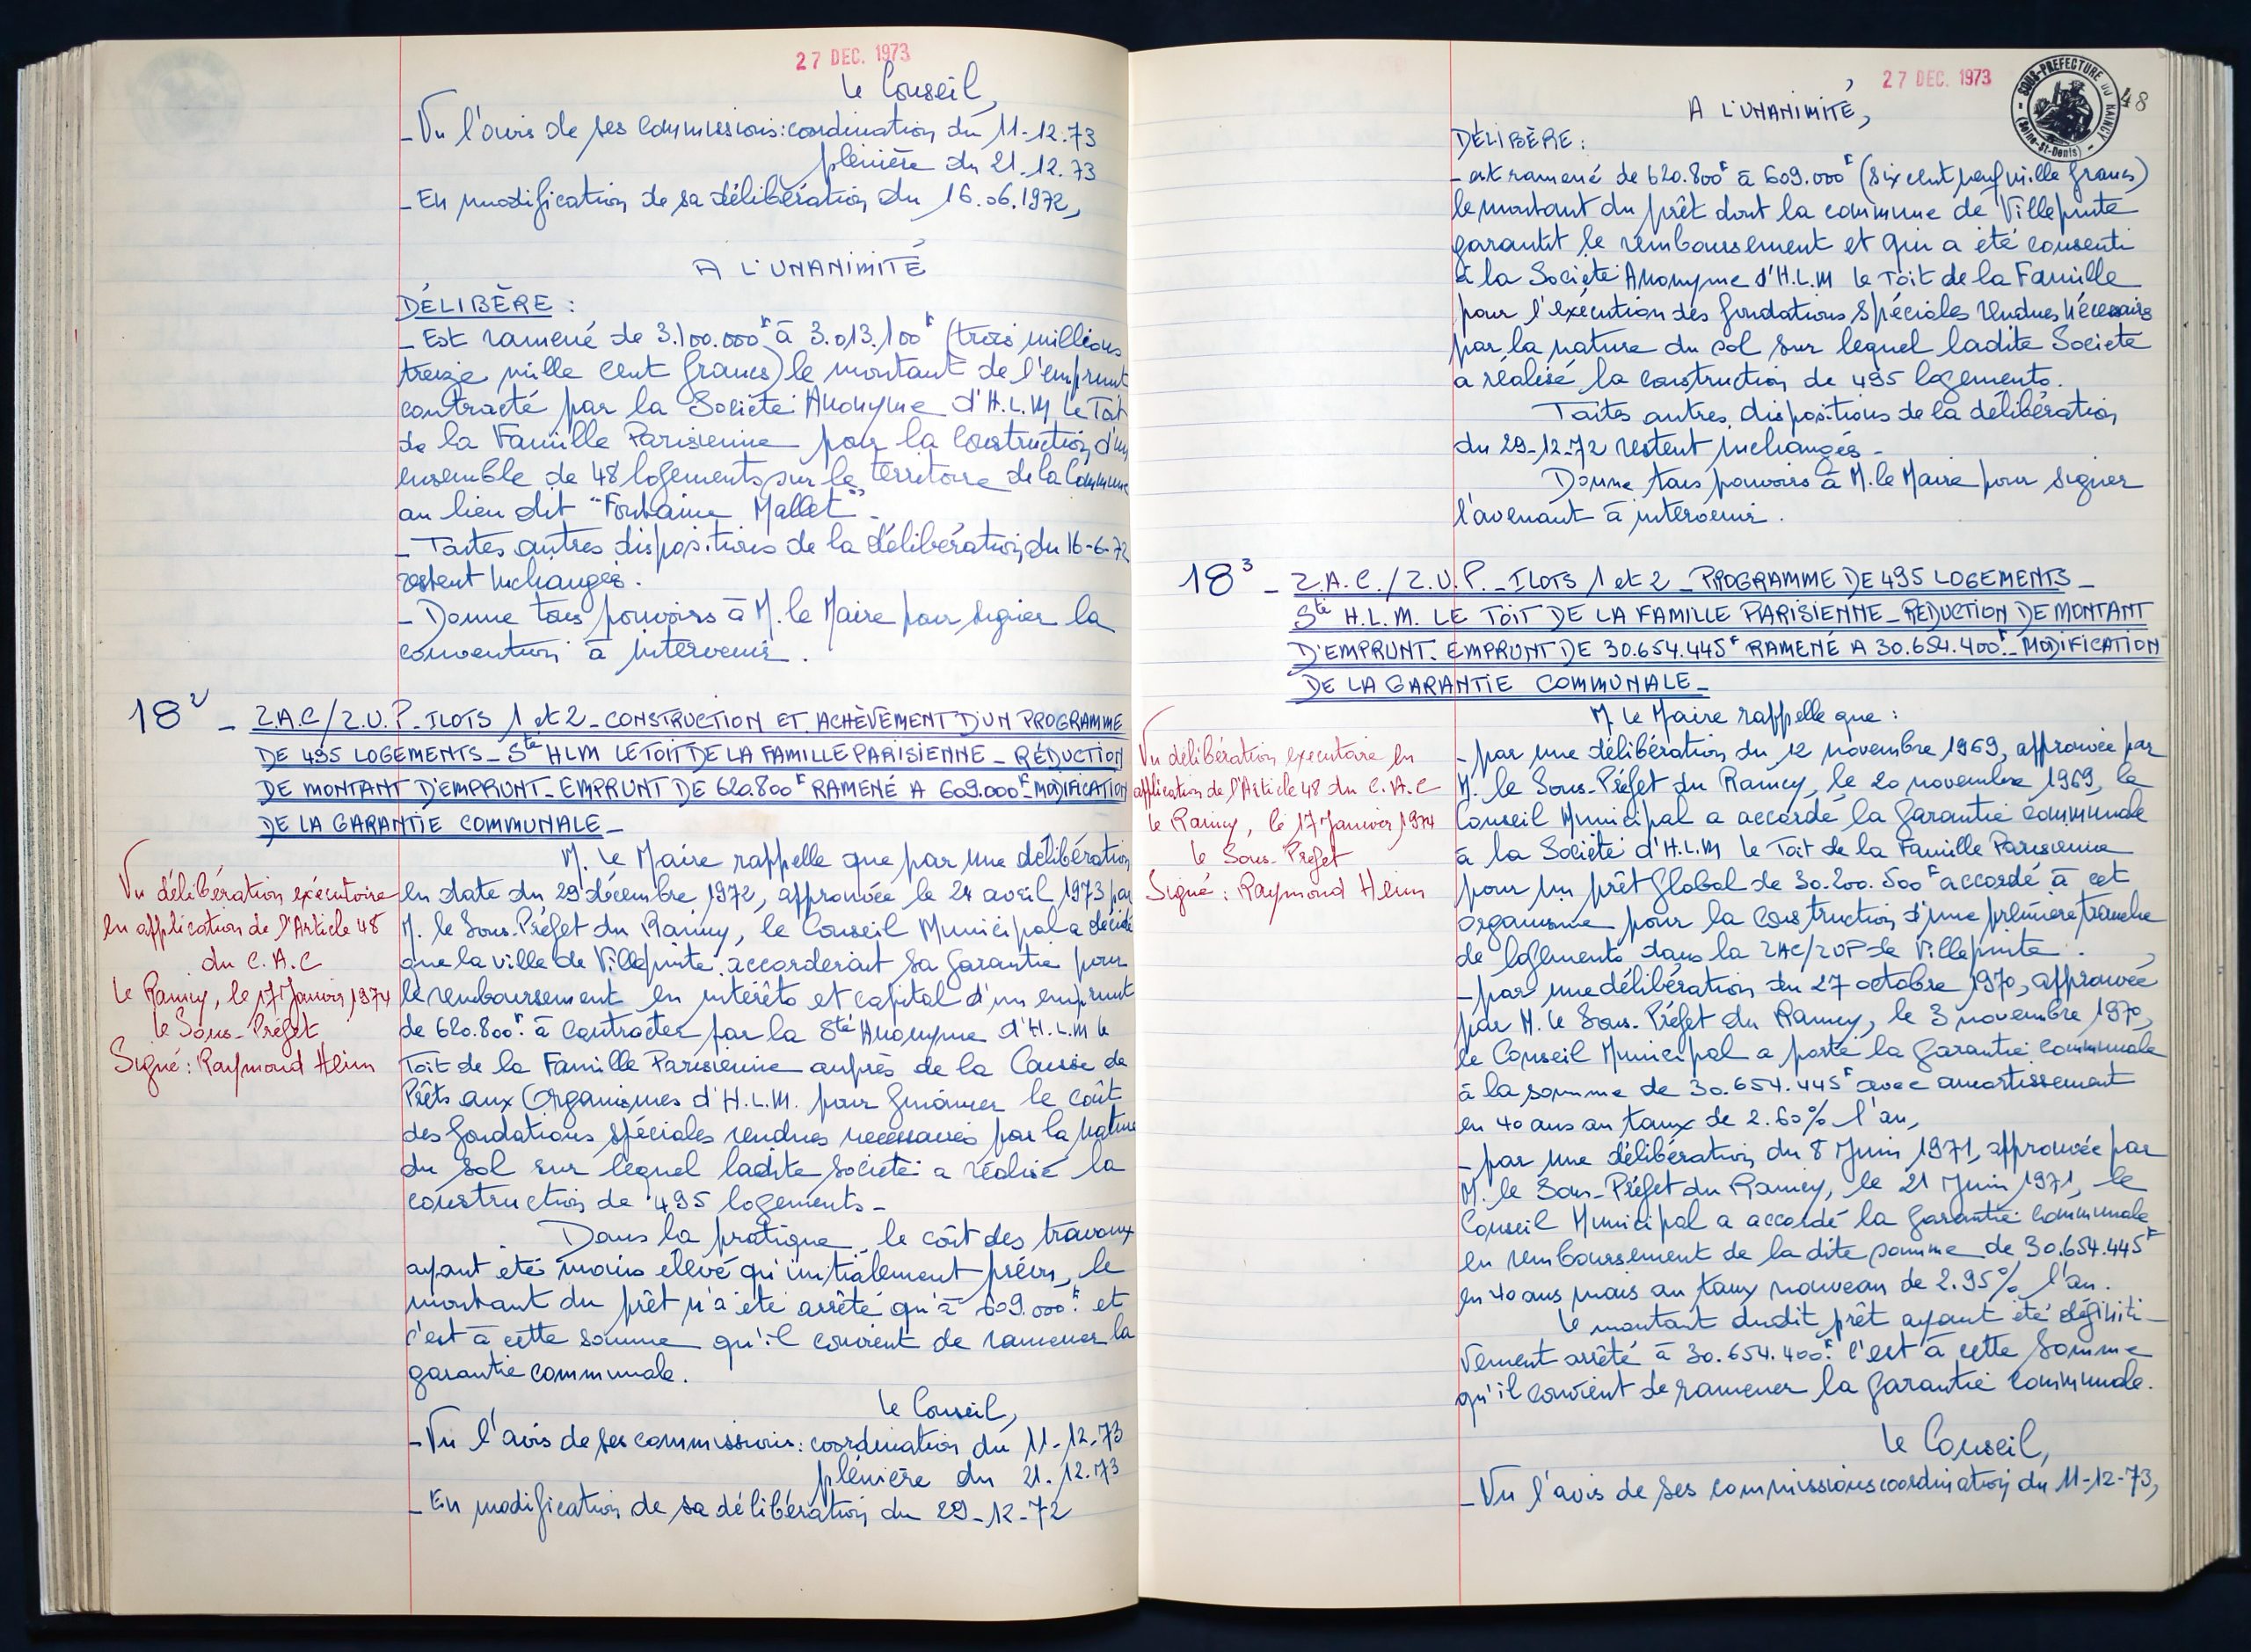 27 DEC. 1973
Le Conseil,
- Vu l'avis de ses commissions: coordination du 11-12-73
plénière du 21.12.73
- En modification de sa délibération du 16.06.1972,
A L'UNANIMITÉ
DÉLIBÈRE :
- Est ramené de 3.100.000F à 3.013.100F (trois millions
treize mille cent francs) le montant de l'emprunt
contracté par la Société Anonyme d'H.L.M Le Toit
de la Famille Parisienne pour la construction d'un
ensemble de 48 logements sur le territoire de la Commune
au lieu dit "Fontaine Mallet" -
- Toutes autres dispositions de la délibération du 16-6-72
restent inchangées.
- Donne tous pouvoirs à M. le Maire pour signer la
convention à intervenir.
18² - Z.A.C/Z.U.P - ILOTS 1 et 2 - CONSTRUCTION ET ACHÈVEMENT D'UN PROGRAMME
DE 495 LOGEMENTS - Sté HLM LE TOIT DE LA FAMILLE PARISIENNE - RÉDUCTION
DE MONTANT D'EMPRUNT - EMPRUNT DE 620.800F RAMENÉ A 609.000F - MODIFICATION
DE LA GARANTIE COMMUNALE -
Vu délibération exécutoire
en application de l'Article 48
du C.A.C
Le Raincy, le 17 Janvier 1974
le Sous-Préfet
Signé : Raymond Heim
M. le Maire rappelle que par une délibération
en date du 29 décembre 1972, approuvée le 24 avril 1973 par
M. le Sous-Préfet du Raincy, le Conseil Municipal a décidé
que la ville de Villepinte accorderait sa garantie pour
le remboursement en intérêts et capital d'un emprunt
de 620.800F à contracter par la Sté Anonyme d'H.L.M le
Toit de la Famille Parisienne auprès de la Caisse de
Prêts aux Organismes d'H.L.M. pour financer le coût
des fondations spéciales rendues nécessaires par la nature
du sol sur lequel ladite société a réalisé la
construction de 495 logements -
Dans la pratique, le coût des travaux
ayant été moins élevé qu'initialement prévu, le
montant du prêt n'a été arrêté qu'à 609.000F et
c'est à cette somme qu'il convient de ramener la
garantie communale.
Le Conseil,
- Vu l'avis de ses commissions: coordination du 11-12-73
plénière du 21.12.73
- En modification de sa délibération du 29-12-72
27 DEC. 1973
SOUS-PREFECTURE DU RAINCY
(Seine-St-Denis)
48
A L'UNANIMITÉ,
DÉLIBÈRE :
- est ramené de 620.800F à 609.000F (six cent neuf mille francs)
le montant du prêt dont la commune de Villepinte
garantit le remboursement et qui a été consenti
à la Société Anonyme d'H.L.M le Toit de la Famille
pour l'exécution des fondations spéciales rendues nécessaires
par la nature du sol sur lequel ladite Société
a réalisé la construction de 495 logements.
Toutes autres dispositions de la délibération
du 29-12-72 restent inchangés -
Donne tous pouvoirs à M. le Maire pour signer
l'avenant à intervenir.
18³ - Z.A.C./Z.U.P. - ILOTS 1 et 2 - PROGRAMME DE 495 LOGEMENTS -
Sté H.L.M. LE TOIT DE LA FAMILLE PARISIENNE - REDUCTION DE MONTANT
D'EMPRUNT - EMPRUNT DE 30.654.445F RAMENÉ A 30.654.400F - MODIFICATION
DE LA GARANTIE COMMUNALE -
Vu délibération exécutoire en
application de l'Article 48 du C.A.C
Le Raincy, le 17 Janvier 1974
le Sous-Préfet
Signé : Raymond Heim
M. le Maire rappelle que :
- par une délibération du 12 novembre 1969, approuvée par
M. le Sous-Préfet du Raincy, le 20 novembre 1969, le
Conseil Municipal a accordé la garantie communale
à la Société d'H.L.M le Toit de la Famille Parisienne
pour un prêt global de 30.200.500F accordé à cet
organisme pour la construction d'une première tranche
de logements dans la ZAC/ZUP de Villepinte.
- par une délibération du 27 octobre 1970, approuvée
par M. le Sous-Préfet du Raincy, le 3 novembre 1970,
le Conseil Municipal a porté la garantie communale
à la somme de 30.654.445F avec amortissement
en 40 ans au taux de 2.60% l'an,
- par une délibération du 8 Juin 1971, approuvée par
M. le Sous-Préfet du Raincy, le 21 Juin 1971, le
Conseil Municipal a accordé la garantie communale
en remboursement de la dite somme de 30.654.445F
en 40 ans mais au taux nouveau de 2.95% l'an.
Le montant dudit prêt ayant été définiti-
vement arrêté à 30.654.400F c'est à cette somme
qu'il convient de ramener la garantie communale.
Le Conseil,
- Vu l'avis de ses commissions coordination du 11-12-73,